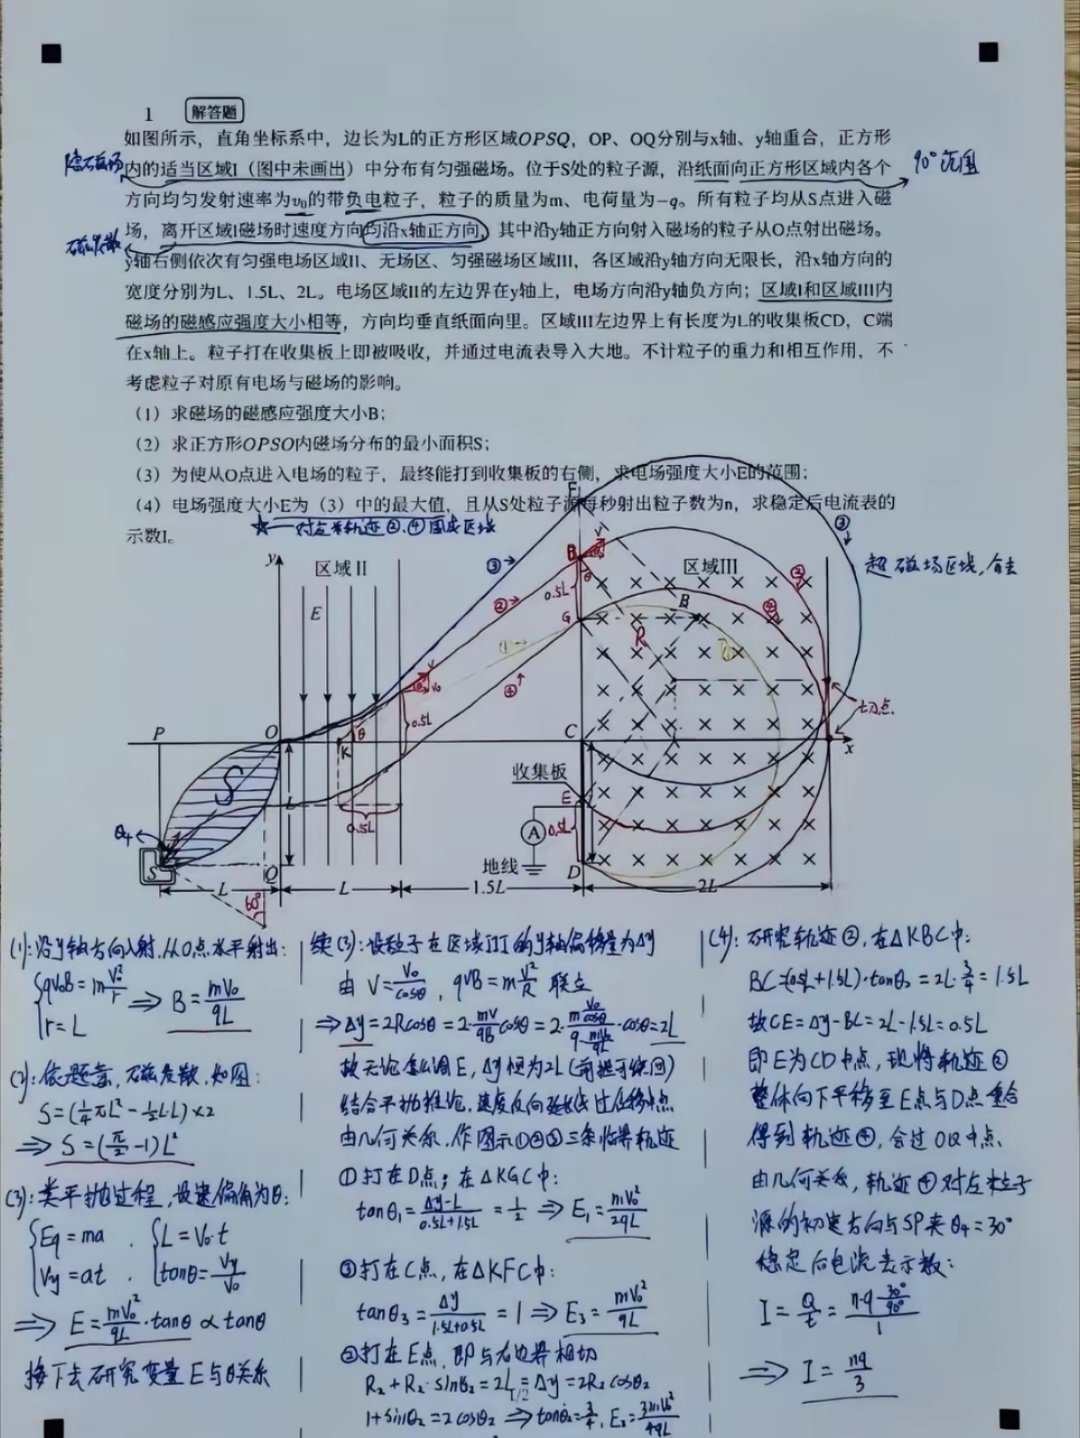 1 解答题
如图所示，直角坐标系中，边长为L的正方形区域OPSQ，OP、OQ分别与x轴、y轴重合，正方形
内的适当区域I（图中未画出）中分布有匀强磁场。位于S处的粒子源，沿纸面向正方形区域内各个
90°范围
方向均匀发射速率为v₀的带负电粒子，粒子的质量为m、电荷量为-q。所有粒子均从S点进入磁
场，离开区域I磁场时速度方向均沿x轴正方向，其中沿y轴正方向射入磁场的粒子从O点射出磁场。
磁发散
y轴右侧依次有匀强电场区域II、无场区、匀强磁场区域III，各区域沿y轴方向无限长，沿x轴方向的
宽度分别为L、1.5L、2L。电场区域II的左边界在y轴上，电场方向沿y轴负方向；区域I和区域III内
磁场的磁感应强度大小相等，方向均垂直纸面向里。区域III左边界上有长度为L的收集板CD，C端
在x轴上。粒子打在收集板上即被吸收，并通过电流表导入大地。不计粒子的重力和相互作用，不
考虑粒子对原有电场与磁场的影响。
（1）求磁场的磁感应强度大小B；
（2）求正方形OPSO内磁场分布的最小面积S；
（3）为使从O点进入电场的粒子，最终能打到收集板的右侧，求电场强度大小E的范围；
（4）电场强度大小E为（3）中的最大值，且从S处粒子源每秒射出粒子数为n，求稳定后电流表的
示数I。
y
区域 II
区域III
超磁场区域，舍去
E
F
B
G
0.5L
③
②
①
④
R
B
切点
P
O
K
θ
0.5L
C
x
S
L
收集板
E
0.5L
A
θ₄
S
Q
地线
D
60°
0.5L
L
L
1.5L
2L
(1)：沿y轴方向入射，从O点水平射出：
qv₀B=m v₀²/r ⇒ B=mv₀/qL
r=L
(2)：依题意，磁发散，如图：
S=(¼πL²-½L·L)×2
⇒ S=(π/2-1)L²
(3)：类平抛过程，设速偏角为θ：
Eq=ma ，L=v₀·t
Vy=at ，tanθ=Vy/V₀
⇒ E=mv₀²/qL·tanθ∝tanθ
接下去研究变量E与θ关系
续(3)：设粒子在区域III的y轴偏移量为Δy
由 V=V₀/cosθ，qVB=m V²/R 联立
⇒ Δy=2Rcosθ=2·mv/qB cosθ=2·m v₀/cosθ/(q·mv₀/qL)·cosθ=2L
故无论怎么调E，Δy恒为2L（前提可绕回）
结合平抛推论，速度反向延长线过位移中点
由几何关系，作图示①②③三条临界轨迹
①打在D点；在△KGC中：
tanθ₁=(Δy-L)/(0.5L+1.5L)=1/2 ⇒ E₁=mv₀²/2qL
③打在C点，在△KFC中：
tanθ₃=Δy/(1.5L+0.5L)=1 ⇒ E₃=mv₀²/qL
②打在E点，即与右边界相切
R₂+R₂·sinθ₂=2L=Δy=2R₂cosθ₂
1/2
1+sinθ₂=2cosθ₂ ⇒ tanθ₂=3/4，E₂=3mv₀²/4qL
(4)：研究轨迹②，在△KBC中：
BC=(0.5L+1.5L)·tanθ₂=2L·3/4=1.5L
故CE=Δy-BC=2L-1.5L=0.5L
即E为CD中点，现将轨迹②
整体向下平移至E点与D点重合
得到轨迹④，会过OQ中点
由几何关系，轨迹④对应粒子
源的初速方向与SP夹θ₄=30°
稳定后电流表示数：
I=Q/t=(n·q·30°/90°)/1
⇒ I=nq/3